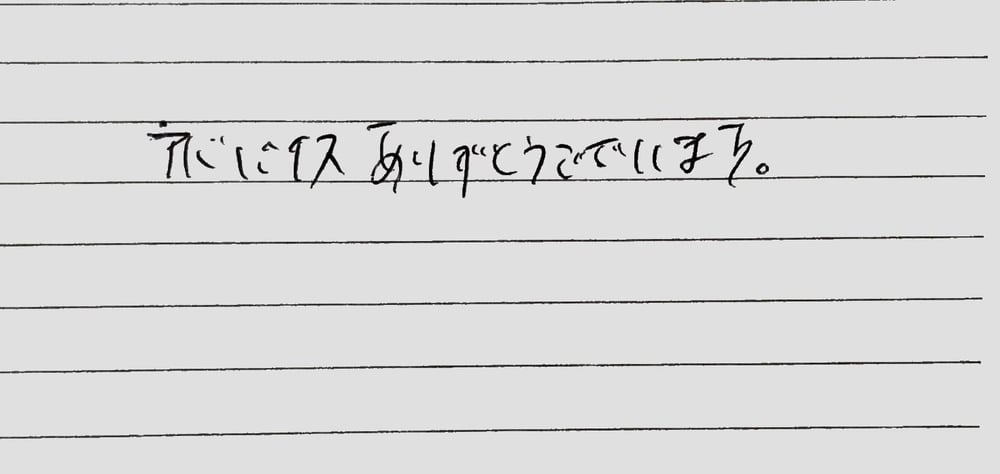 アドバイス ありがとうございます。